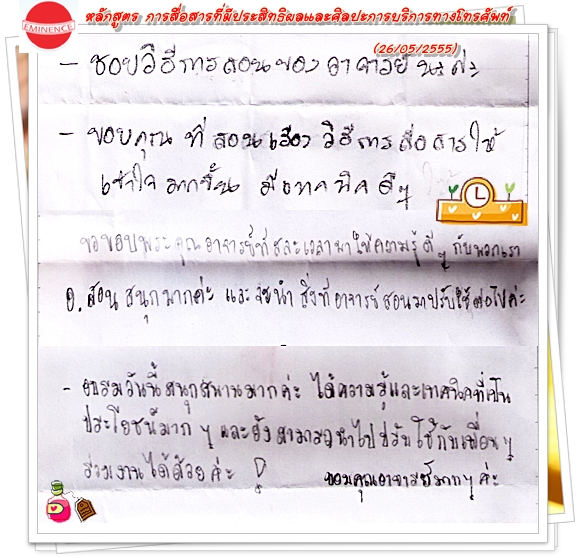 หลักสูตร การสื่อสารที่มีประสิทธิผลและศิลปะการบริการทางโทรศัพท์
EMINENCE
(26/05/2555)
- ชอบวิธีการสอนของ อาจารย์ นะค่ะ
- ขอบคุณ ที่ สอนเรื่อง วิธีการสื่อสารให้
เข้าใจ มากขึ้น มีเทคนิค ดีๆ
ขอขอบพระคุณอาจารย์ที่สละเวลามาให้ความรู้ ดี ๆ กับพวกเรา
อ. สอน สนุกมากค่ะ และจะนำ สิ่งที่อาจารย์สอนมาปรับใช้ต่อไปค่ะ
- อบรมวันนี้สนุกสนานมากค่ะ ได้ความรู้และเทคนิคที่เป็น
ประโยชน์มาก ๆ และยังสามารถนำไปปรับใช้กับเพื่อน ๆ
ร่วมงานได้ด้วยค่ะ
ขอบคุณอาจารย์มากๆ ค่ะ